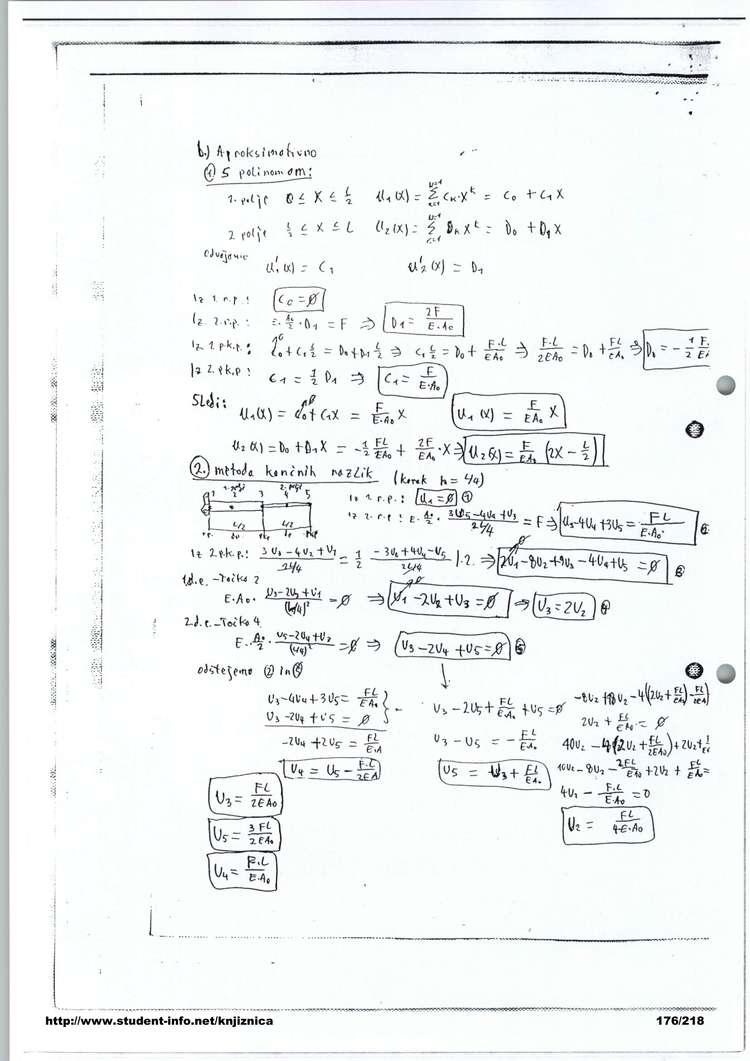 b.) Aproksimativno
① S polinomom:
1. polje 0 ≤ X ≤ L/2 U₁(x) = Σ Cₖ·Xᵏ = C₀ + C₁X
2 polje L/2 ≤ X ≤ L U₂(x) = Σ Dₖ Xᵏ = D₀ + D₁X
odvajanje
U₁'(x) = C₁ U₂'(x) = D₁
Iz 1. r.p.: C₀ = 0
Iz 2. r.p.: E·A₀/2·D₁ = F ⇒ D₁ = 2F/E·A₀
Iz 1. p.k.p.: C₀ + C₁ L/2 = D₀ + D₁ L/2 ⇒ C₁ L/2 = D₀ + F·L/EA₀ ⇒ F·L/2EA₀ = D₀ + FL/EA₀ ⇒ D₀ = -1/2
Iz 2. p.k.p: C₁ = 1/2 D₁ ⇒ C₁ = F/E·A₀
Sledi:
U₁(x) = C₀ + C₁X = F/E·A₀ X U₁(x) = F/EA₀ X
U₂(x) = D₀ + D₁X = -1/2 FL/EA₀ + 2F/EA₀·X ⇒ U₂(x) = F/EA₀ (2X - L/2)
2. metoda končnih razlik (korak h = L/4)
1. polje 2. polje
1 2 3 4 5
L/2 L/2
Iz 1. r.p.: U₁ = 0 ①
Iz 2. r.p: E·A₀/2·3U₅-4U₄+U₃/2L/4 = F ⇒ U₃-4U₄+3U₅ = FL/E·A₀ ②
Iz 2.p.k.p.: 3U₃-4U₂+U₁/2L/4 = 1/2 -3U₃+4U₄-U₅/2L/4 /·2 ⇒ 2U₁-8U₂+9U₃-4U₄+U₅ = 0 ③
1.d.e. – točka 2
E·A₀·U₃-2U₂+U₁/(L/4)² = 0 ⇒ U₁-2U₂+U₃ = 0 ⇒ U₃ = 2U₂ ④
2.d.e. – točka 4
E·A₀/2·U₅-2U₄+U₃/(L/4)² = 0 ⇒ U₃-2U₄+U₅ = 0 ⑤
odštejemo ② in ⑤
U₃-4U₄+3U₅ = FL/EA₀
U₃-2U₄+U₅ = 0
-2U₄+2U₅ = FL/E·A
U₄ = U₅ - F·L/2EA
U₃ - 2U₅ + FL/EA₀ + U₅ = 0
U₃ - U₅ = -FL/EA₀
U₅ = U₃ + FL/EA₀
2U₂ + FL/EA₀ = 0
4U₂ - F·L/E·A₀ = 0
U₂ = FL/4E·A₀
U₃ = FL/2EA₀
U₅ = 3FL/2EA₀
U₄ = F·L/E·A₀
http://www.student-info.net/knjiznica 176/218